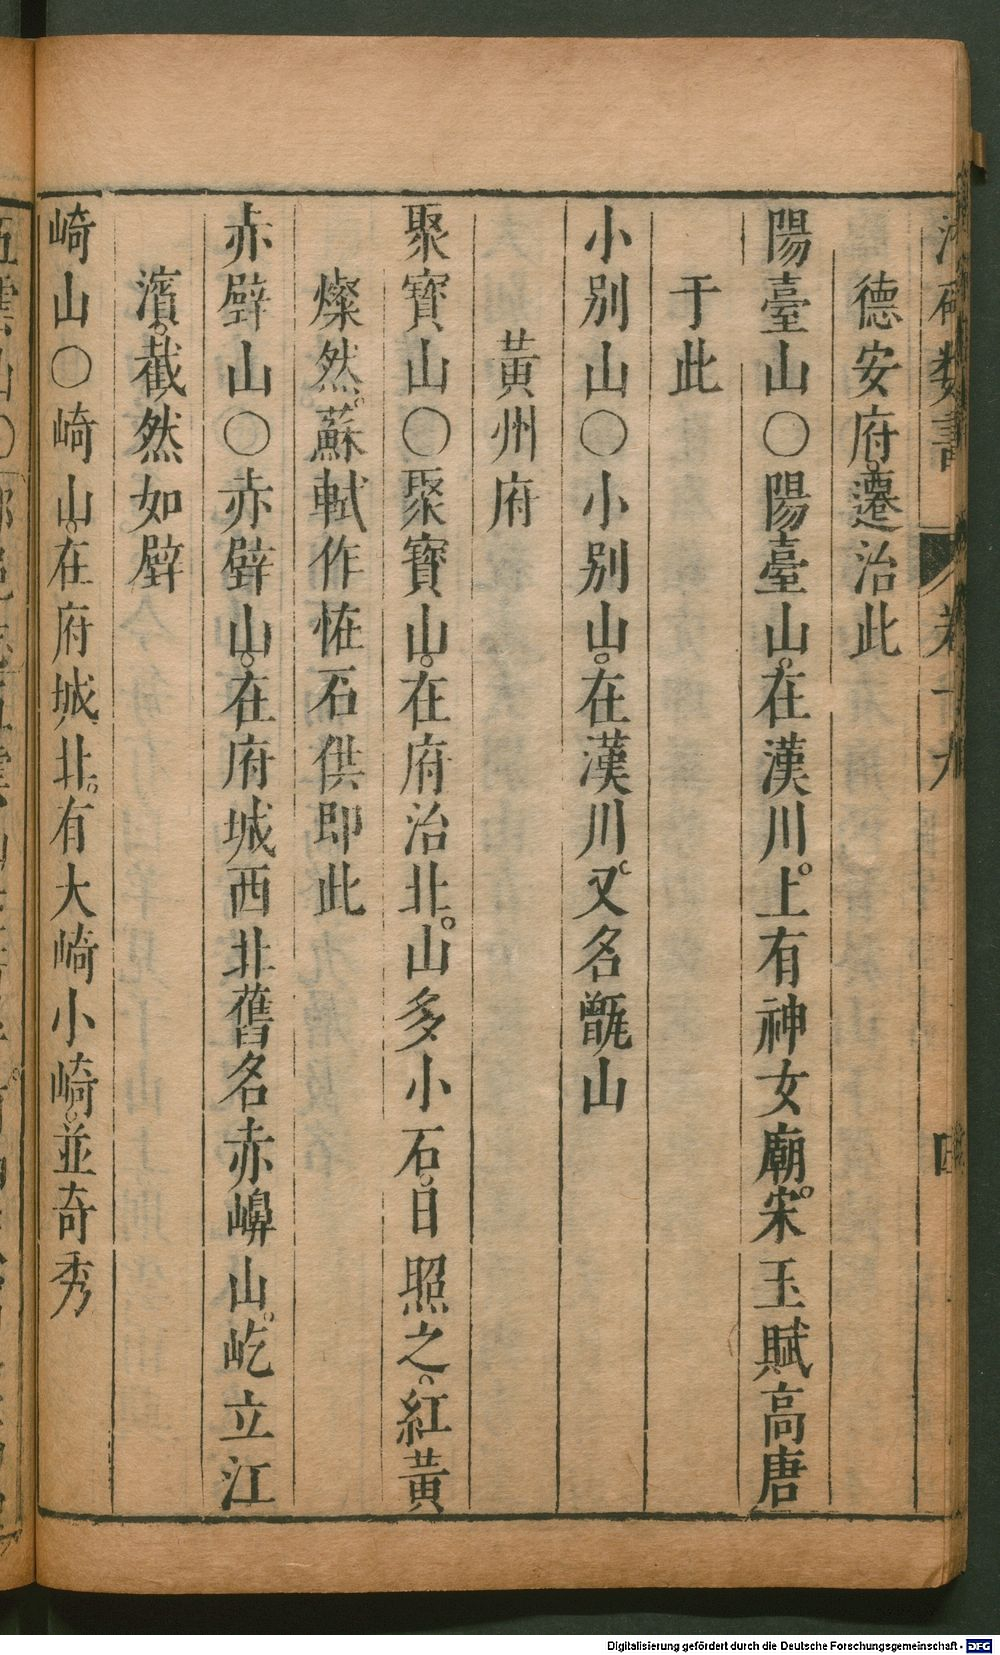 德安府。遷治此
陽臺山〇陽臺山。在漢川。上有神女廟。宋玉賦高唐
于此
小别山〇小别山。在漢川。又名甑山
黃州府
聚寶山〇聚寶山。在府治北。山多小石。日照之。紅黃
燦然。蘇軾作恠石供即此
赤壁山〇赤壁山。在府城西北舊名赤嶼山。屹立江
濱。截然如壁
崎山〇崎山。在府城北。有大崎小崎。並奇秀
Digitalisierung gefördert durch die Deutsche Forschungsgemeinschaft - DFG